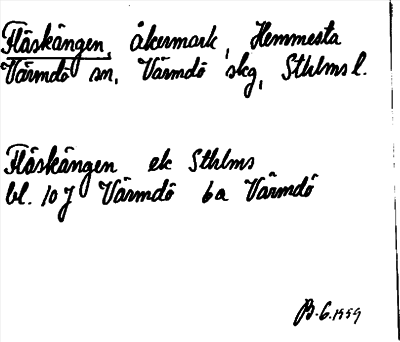 Fläskängen, åkermark, Hemmesta
Värmdö sn, Värmdö skg, Sthlms l.
Fläskängen ek Sthlms
bl. 10 J Värmdö 6a Värmdö
B. G. 1959